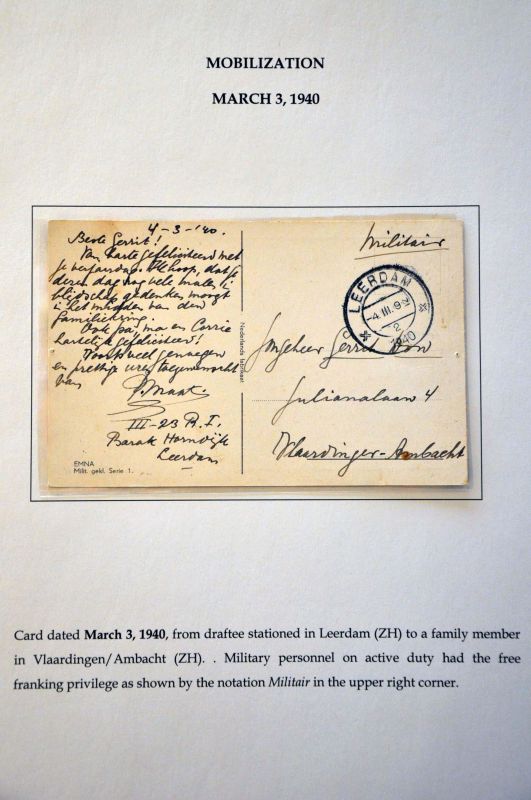 MOBILIZATION
MARCH 3, 1940
4-3-'40.
Beste Gerrit!
Van harte gefeliciteerd met
je verjaardag. Ik hoop, dat je
deze dag nog vele malen in
blijdschap gedenken moogt
in het midden van den
familiekring.
Ook pa, ma en Corrie
hartelijk gefeliciteerd!
Voorts veel genoegen
en prettige uren toegewenscht
van
III-23 R.I.
Barak Horndijk
Leerdam
EMNA
Milit. gekl. Serie 1.
Nederlands fabrikaat
Militair
LEERDAM
-4.III.9
2
1940
Jongeheer Gerrit
Julianalaan 4
Vlaardinger-Ambacht
Card dated March 3, 1940, from draftee stationed in Leerdam (ZH) to a family member
in Vlaardingen/Ambacht (ZH). . Military personnel on active duty had the free
franking privilege as shown by the notation Militair in the upper right corner.